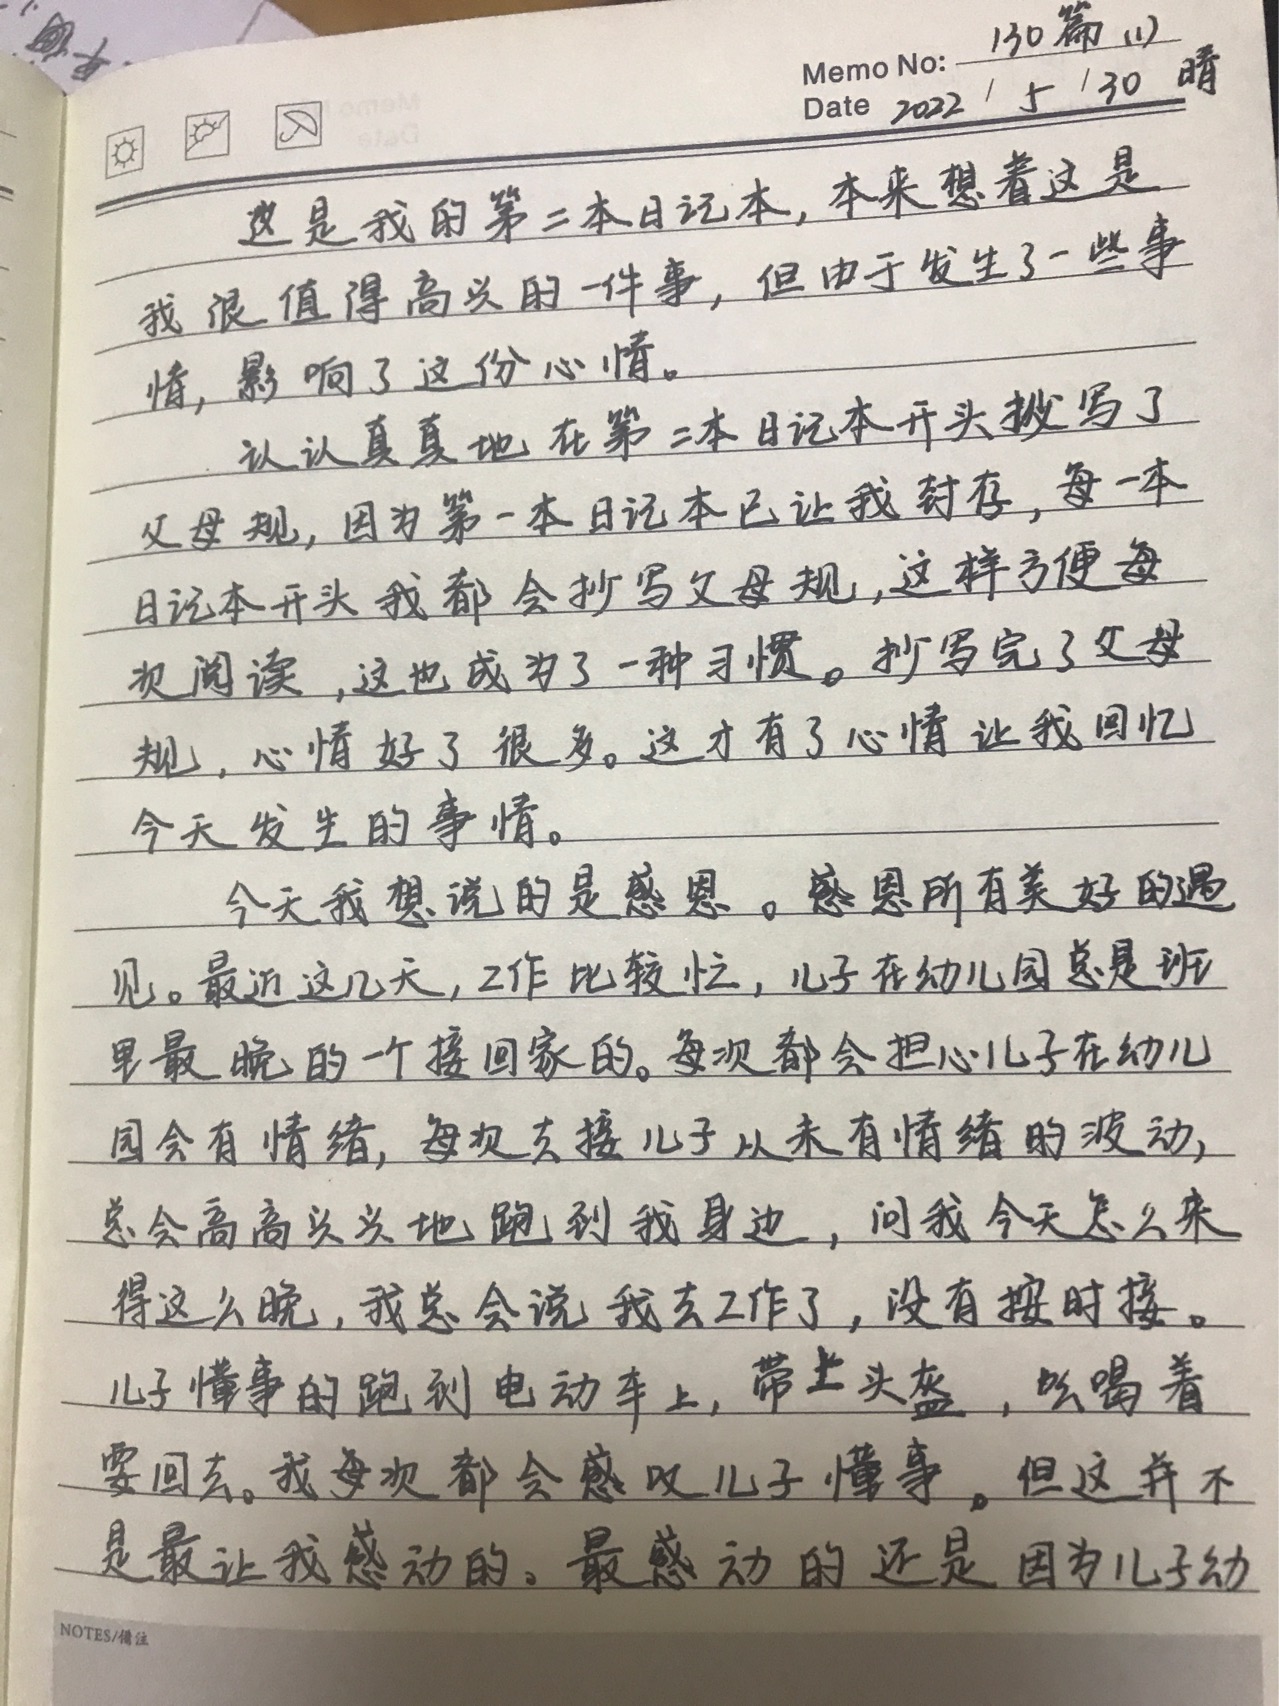 Memo No: 130篇(1)
Date 2022 / 5 / 30 晴
这是我的第二本日记本，本来想着这是
我很值得高兴的一件事，但由于发生了一些事
情，影响了这份心情。
认认真真地在第二本日记本开头抄写了
父母规，因为第一本日记本已让我封存，每一本
日记本开头我都会抄写父母规，这样方便每
次阅读，这也成为了一种习惯。抄写完了父母
规，心情好了很多。这才有了心情让我回忆
今天发生的事情。
今天我想说的是感恩。感恩所有美好的遇
见。最近这几天，工作比较忙，儿子在幼儿园总是班
里最晚的一个接回家的。每次都会担心儿子在幼儿
园会有情绪，每次去接儿子从未有情绪的波动，
总会高高兴兴地跑到我身边，问我今天怎么来
得这么晚，我总会说我去工作了，没有按时接。
儿子懂事的跑到电动车上，带上头盔，吆喝着
要回去。我每次都会感叹儿子懂事。但这并不
是最让我感动的。最感动的还是因为儿子幼
NOTES/備注